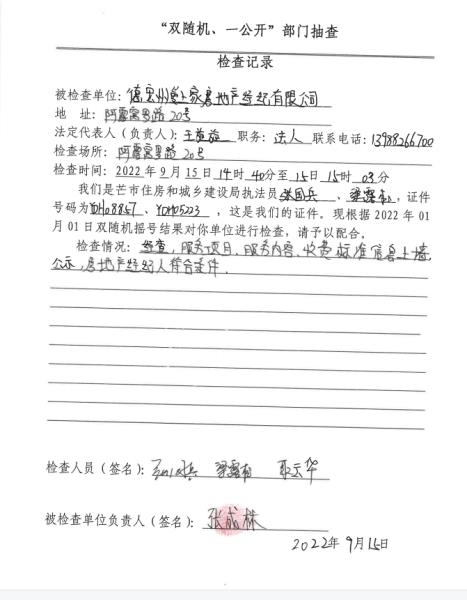 “双随机、一公开”部门抽查
检查记录
被检查单位：德宏州爱上家房地产经纪有限公司
地 址：阿露窝罗路20号
法定代表人（负责人）： 职务：法人 联系电话：13988266700
检查场所：阿露窝罗路20号
检查时间：2022年9月15日14时40分至15日15时03分
我们是芒市住房和城乡建设局执法员 、 ，证件
号码为YDH08867、YDH05223，这是我们的证件。现根据2022年01
月01日双随机摇号结果对你单位进行检查，请予以配合。
检查情况：经查，服务项目、服务内容、收费标准 上墙
公示，房地产经纪人符合条件.
检查人员（签名）：
被检查单位负责人（签名）：张成林
2022年9月15日